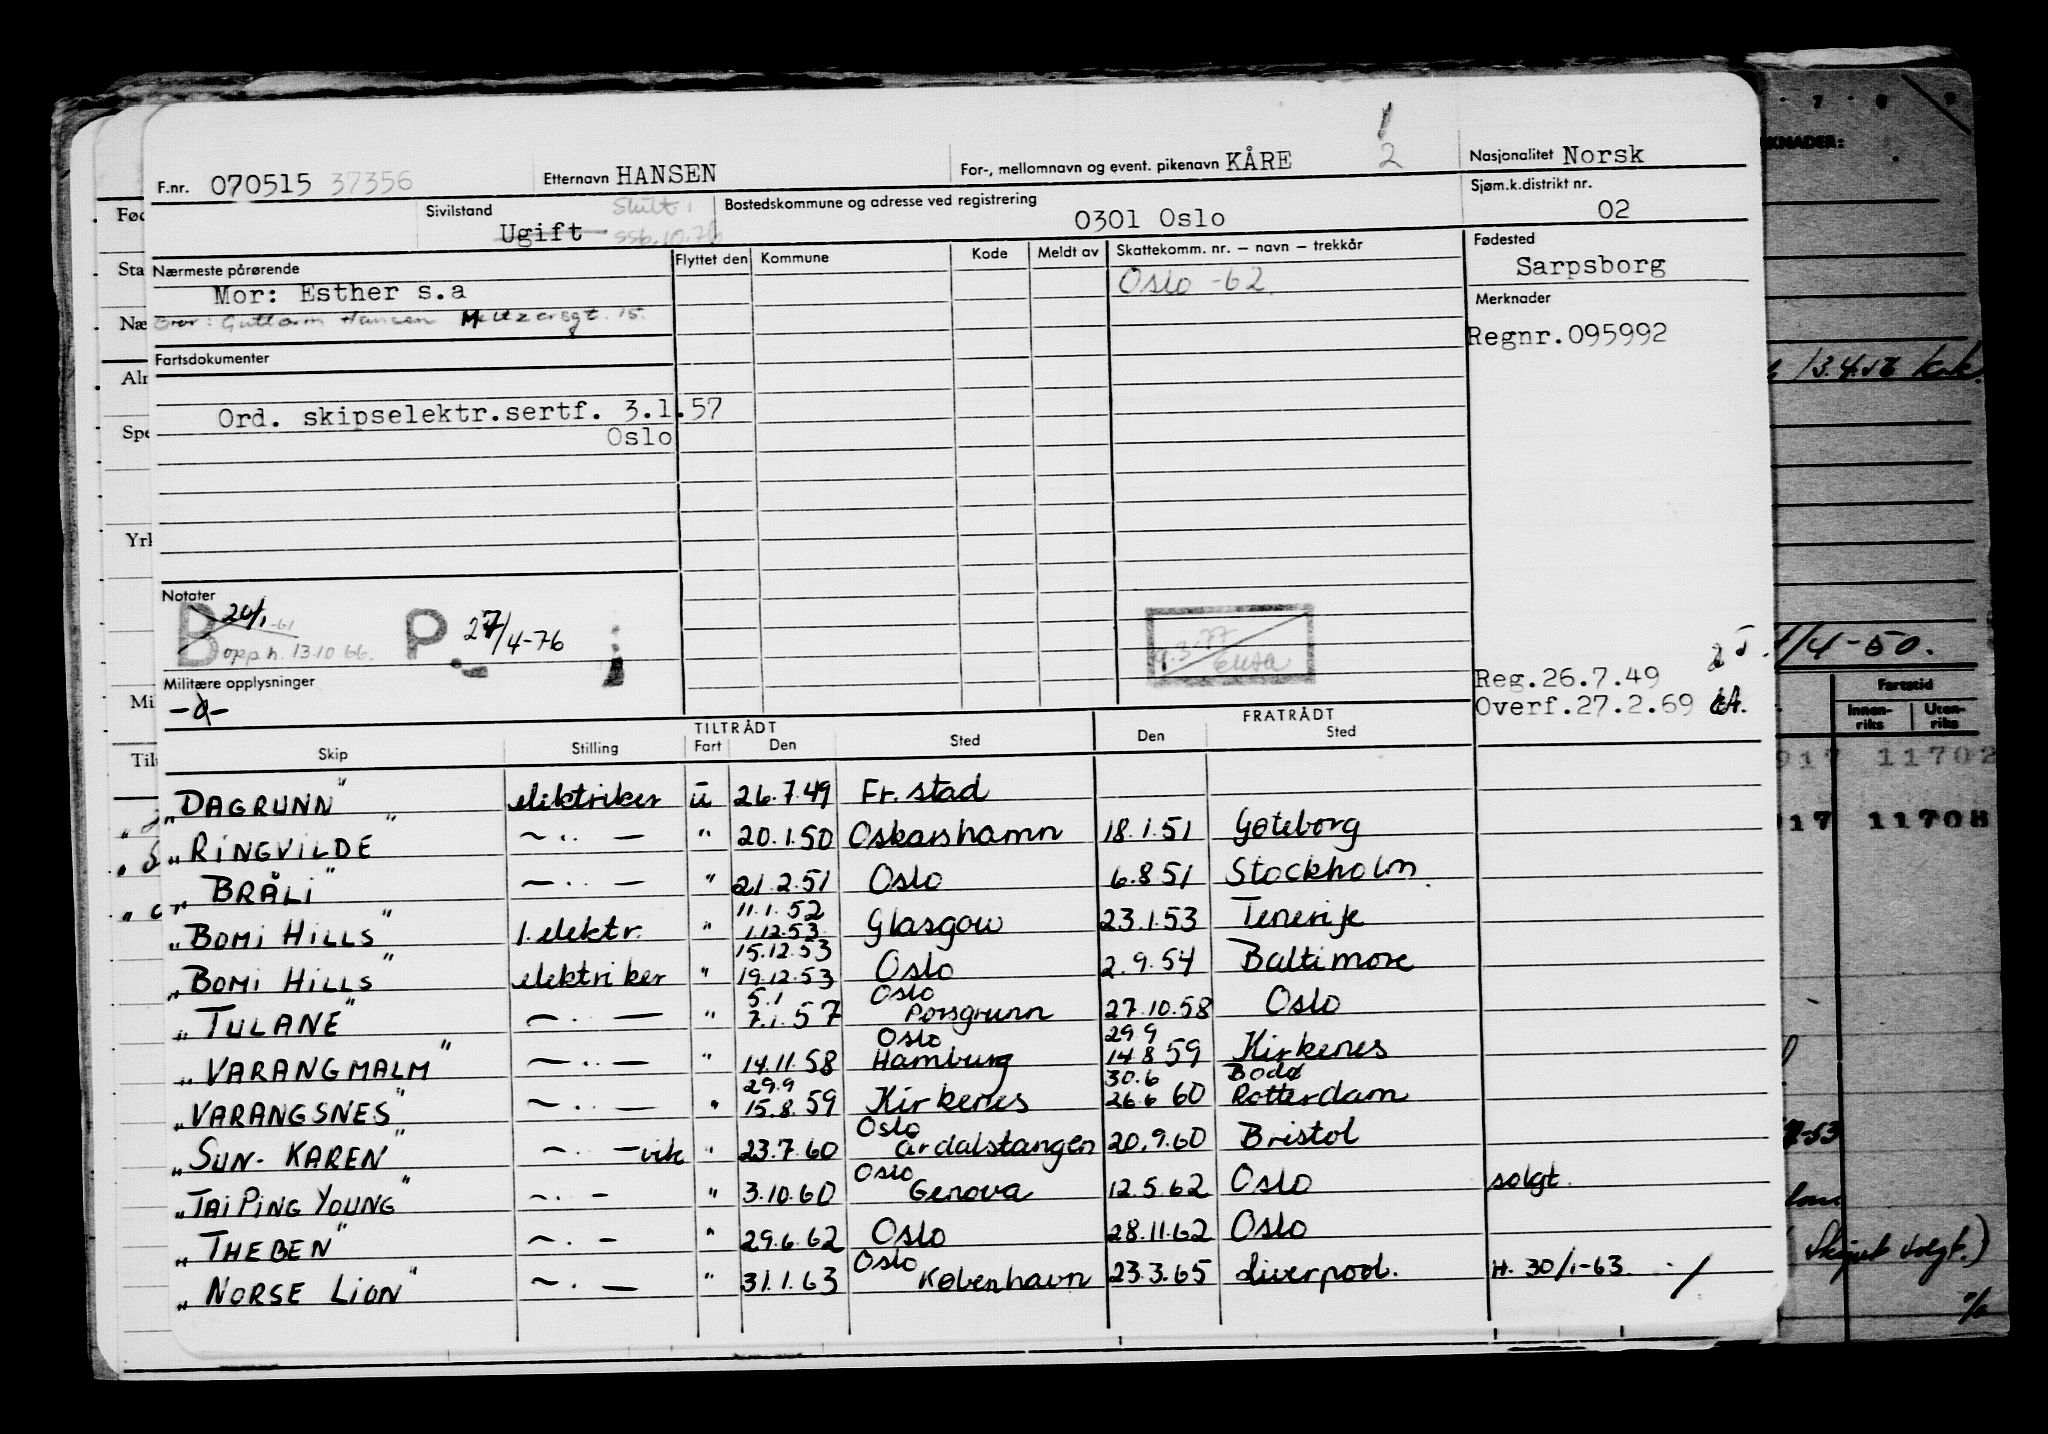 F.nr. 070515 37356 Etternavn HANSEN For-, mellomnavn og event. pikenavn KÅRE 1/2 Nasjonalitet Norsk
Sivilstand Ugift Skilt Bostedskommune og adresse ved registrering 0301 Oslo Sjøm.k.distrikt nr. 02
Nærmeste pårørende Flyttet den Kommune Kode Meldt av Skattekomm. nr. – navn – trekkår Fødested
Mor: Esther s.a Oslo -62. Sarpsborg
Bror: Guttorm Hansen Meltzersgt. 15. Merknader
Regnr.095992
Fartsdokumenter
Ord. skipselektr.sertf. 3.1.57
Oslo
Notater
B 20/1 -61 P 27/4-76
opp.h. 13.10 66. 4.3.77
Reg.26.7.49
Militære opplysninger Overf.27.2.69
TILTRÅDT FRATRÅDT
Skip Stilling Fart Den Sted Den Sted
„DAGRUNN" elektriker u 26.7.49 Fr. stad
„RINGVILDE" —..— " 20.1.50 Oskarshamn 18.1.51 Gøteborg
„BRÅLI" —..— " 21.2.51 Oslo 6.8.51 Stockholm
11.1.52
„BOMI HILLS" 1. elektr. " 1.12.53 Glasgow 23.1.53 Tenerife
15.12.53
„BOMI HILLS" elektriker " 19.12.53 Oslo 2.9.54 Baltimore
5.1 Oslo
„TULANE" —..— " 7.1.57 Porsgrunn 27.10.58 Oslo
Oslo 29.9
„VARANGMALM" —..— " 14.11.58 Hamburg 14.8 59 Kirkenes
29.9 30.6 Bodø
„VARANGSNES" —..— " 15.8.59 Kirkenes 26.6 60 Rotterdam
Oslo
„SUN-KAREN" —..—vik " 23.7.60 Årdalstangen 20.9.60 Bristol
Oslo
„TAI PING YOUNG" —..— " 3.10.60 Genova 12.5.62 Oslo solgt.
„THEBEN" —.— " 29.6.62 Oslo 28.11.62 Oslo
Oslo
„NORSE LION" —.— " 31.1.63 København 23.3.65 Liverpool. H. 30/1-63.
Fød
Sta
Næ
Aln
Spe
Yrk
Mi
Til
7 8 9
KNADER:
13.4.56
1/4-50.
Fartstid
Innen-
riks
Uten-
riks
917 11702
917 11708
-53
Skipet solgt.)